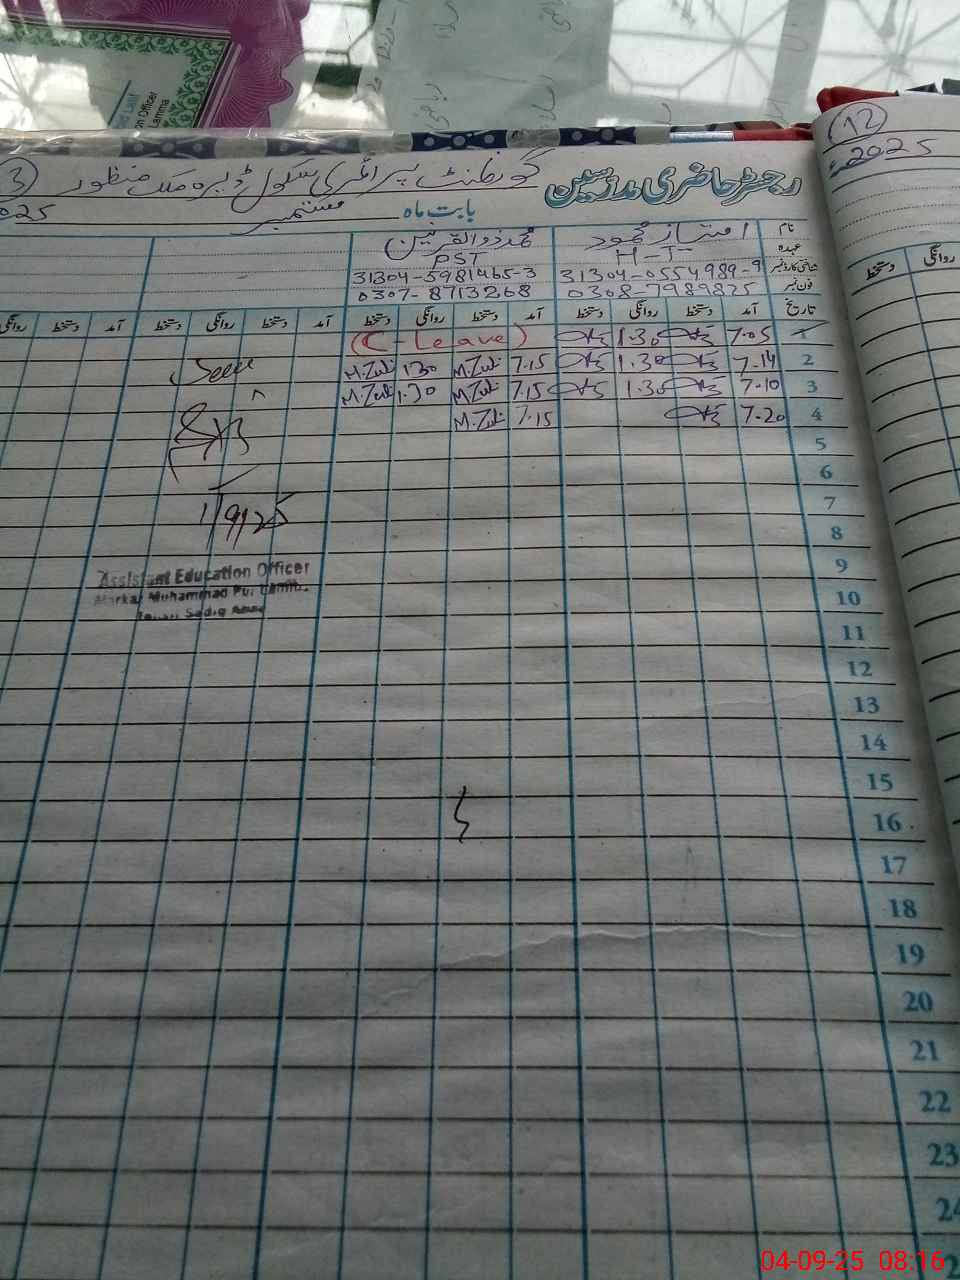 Officer
12
2025
3
رجسٹر حاضری مدرسین گورنمنٹ پرائمری سکول ڈیرہ ملک منظور
بابت ماہ ستمبر
نام امتیاز محمود محمد ذوالقرنین
عہدہ H-T PST
شناختی کارڈ نمبر 31304-0554989-9 31304-5981465-3
فون نمبر 0308-7989825 0307-8713268
تاریخ آمد دستخط روانگی دستخط آمد دستخط روانگی دستخط آمد دستخط روانگی دستخط آمد دستخط روانگی
روانگی دستخط
1 7.05 1.30 (C-Leave)
2 7.14 1.30 7.15 M.Zul 1.30 M.Zul
3 7.10 1.30 7.15 M.Zul 1.30 M.Zul
4 7.20 7.15 M.Zul
Seen
5
6
7
1/9/25
8
9
Assistant Education Officer
Markaz Muhammad Pur Lamma
Sadiq
10
11
12
13
14
15
16
17
18
19
20
21
22
23
04-09-25 08:16